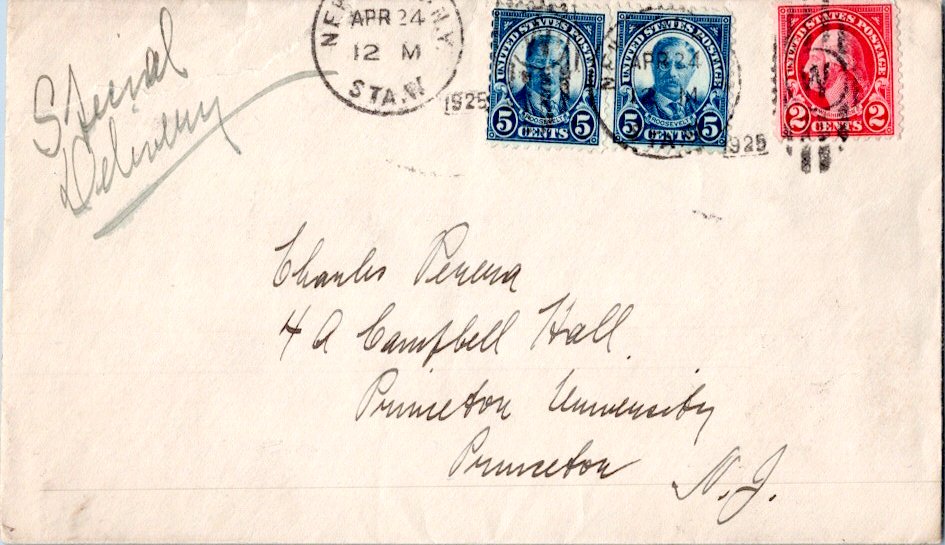 NEW YORK, N.Y.
APR 24
12 M
STA. W
1925
UNITED STATES POSTAGE
ROOSEVELT
5 CENTS 5
UNITED STATES POSTAGE
ROOSEVELT
5 CENTS 5
APR 24
M
1925
UNITED STATES POSTAGE
W
2 CENTS 2
Special
Delivery
Charles Perera
4 A Campbell Hall.
Princeton University
Princeton N.J.